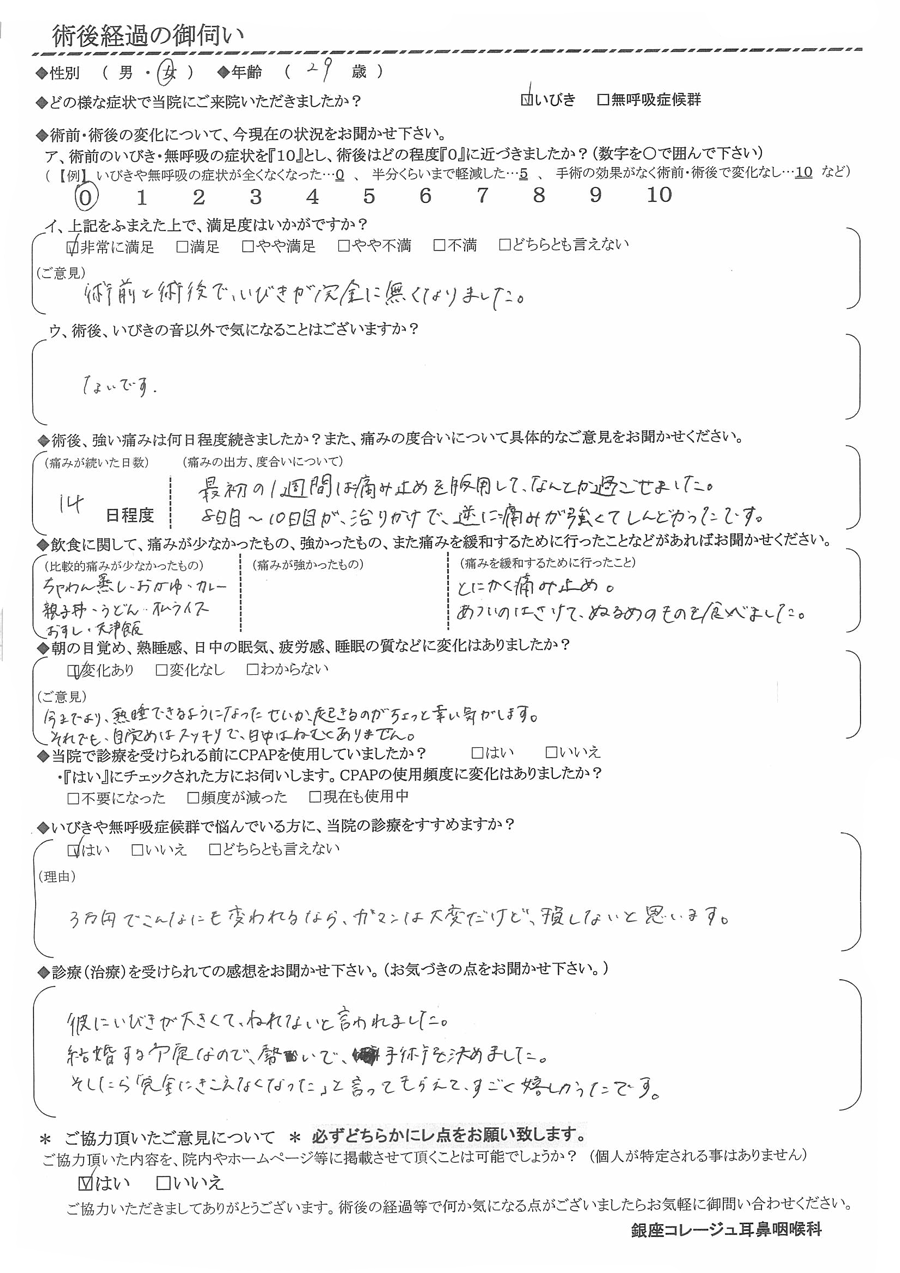 術後経過の御伺い
◆性別 ( 男 ・ 女 ) ◆年齢 ( 29 歳 )
◆どの様な症状で当院にご来院いただきましたか? ☑いびき □無呼吸症候群
◆術前・術後の変化について、今現在の状況をお聞かせ下さい。
ア、術前のいびき・無呼吸の症状を『10』とし、術後はどの程度『0』に近づきましたか?(数字を〇で囲んで下さい)
(【例】いびきや無呼吸の症状が全くなくなった…0 、 半分くらいまで軽減した…5 、 手術の効果がなく術前・術後で変化なし…10 など)
0 1 2 3 4 5 6 7 8 9 10
イ、上記をふまえた上で、満足度はいかがですか?
☑非常に満足 □満足 □やや満足 □やや不満 □不満 □どちらとも言えない
(ご意見)
術前と術後で、いびきが完全に無くなりました。
ウ、術後、いびきの音以外で気になることはございますか?
ないです.
◆術後、強い痛みは何日程度続きましたか?また、痛みの度合いについて具体的なご意見をお聞かせください。
(痛みが続いた日数) (痛みの出方、度合いについて)
最初の1週間は痛み止めを服用して、なんとか過ごせました。
14 日程度 8日目～10日目が、治りかけで、逆に痛みが強くてしんどかったです。
◆飲食に関して、痛みが少なかったもの、強かったもの、また痛みを緩和するために行ったことなどがあればお聞かせください。
(比較的痛みが少なかったもの) (痛みが強かったもの) (痛みを緩和するために行ったこと)
ちゃわん蒸し・おかゆ・カレー とにかく痛み止め。
親子丼・うどん・オムライス あついのはさけて、ぬるめのものを食べました。
おすし・天津飯
◆朝の目覚め、熟睡感、日中の眠気、疲労感、睡眠の質などに変化はありましたか?
☑変化あり □変化なし □わからない
(ご意見)
今までより、熟睡できるようになったせいか、起きるのがちょっと辛い気がします。
それでも、目覚めはスッキリで、日中はねむくありません。
◆当院で診療を受けられる前にCPAPを使用していましたか? □はい □いいえ
・『はい』にチェックされた方にお伺いします。CPAPの使用頻度に変化はありましたか?
□不要になった □頻度が減った □現在も使用中
◆いびきや無呼吸症候群で悩んでいる方に、当院の診療をすすめますか?
☑はい □いいえ □どちらとも言えない
(理由)
3万円でこんなにも変われるなら、ガマンは大変だけど、損しないと思います。
◆診療(治療)を受けられての感想をお聞かせ下さい。(お気づきの点をお聞かせ下さい。)
彼にいびきが大きくて、ねれないと言われました。
結婚する予定なので、勢いで、手術を決めました。
そしたら「完全にきこえなくなった」と言ってもらえて、すごく嬉しかったです。
＊ ご協力頂いたご意見について ＊ 必ずどちらかにレ点をお願い致します。
ご協力頂いた内容を、院内やホームページ等に掲載させて頂くことは可能でしょうか? (個人が特定される事はありません)
☑はい □いいえ
ご協力いただきましてありがとうございます。術後の経過等で何か気になる点がございましたらお気軽に御問い合わせください。
銀座コレージュ耳鼻咽喉科